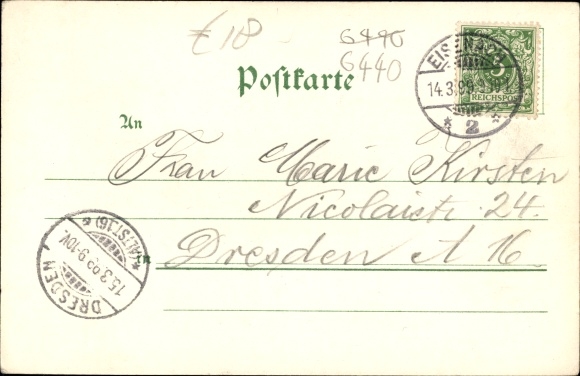 € 18
6440
6440
Postkarte
EISENACH
14.3.99
* 2 *
5
REICHSPOST
An
Frau Marie Kirsten
Nicolaistr. 24.
in Dresden A 16.
DRESDEN
15.3.99. 9-10V.
* ALTST.16) *